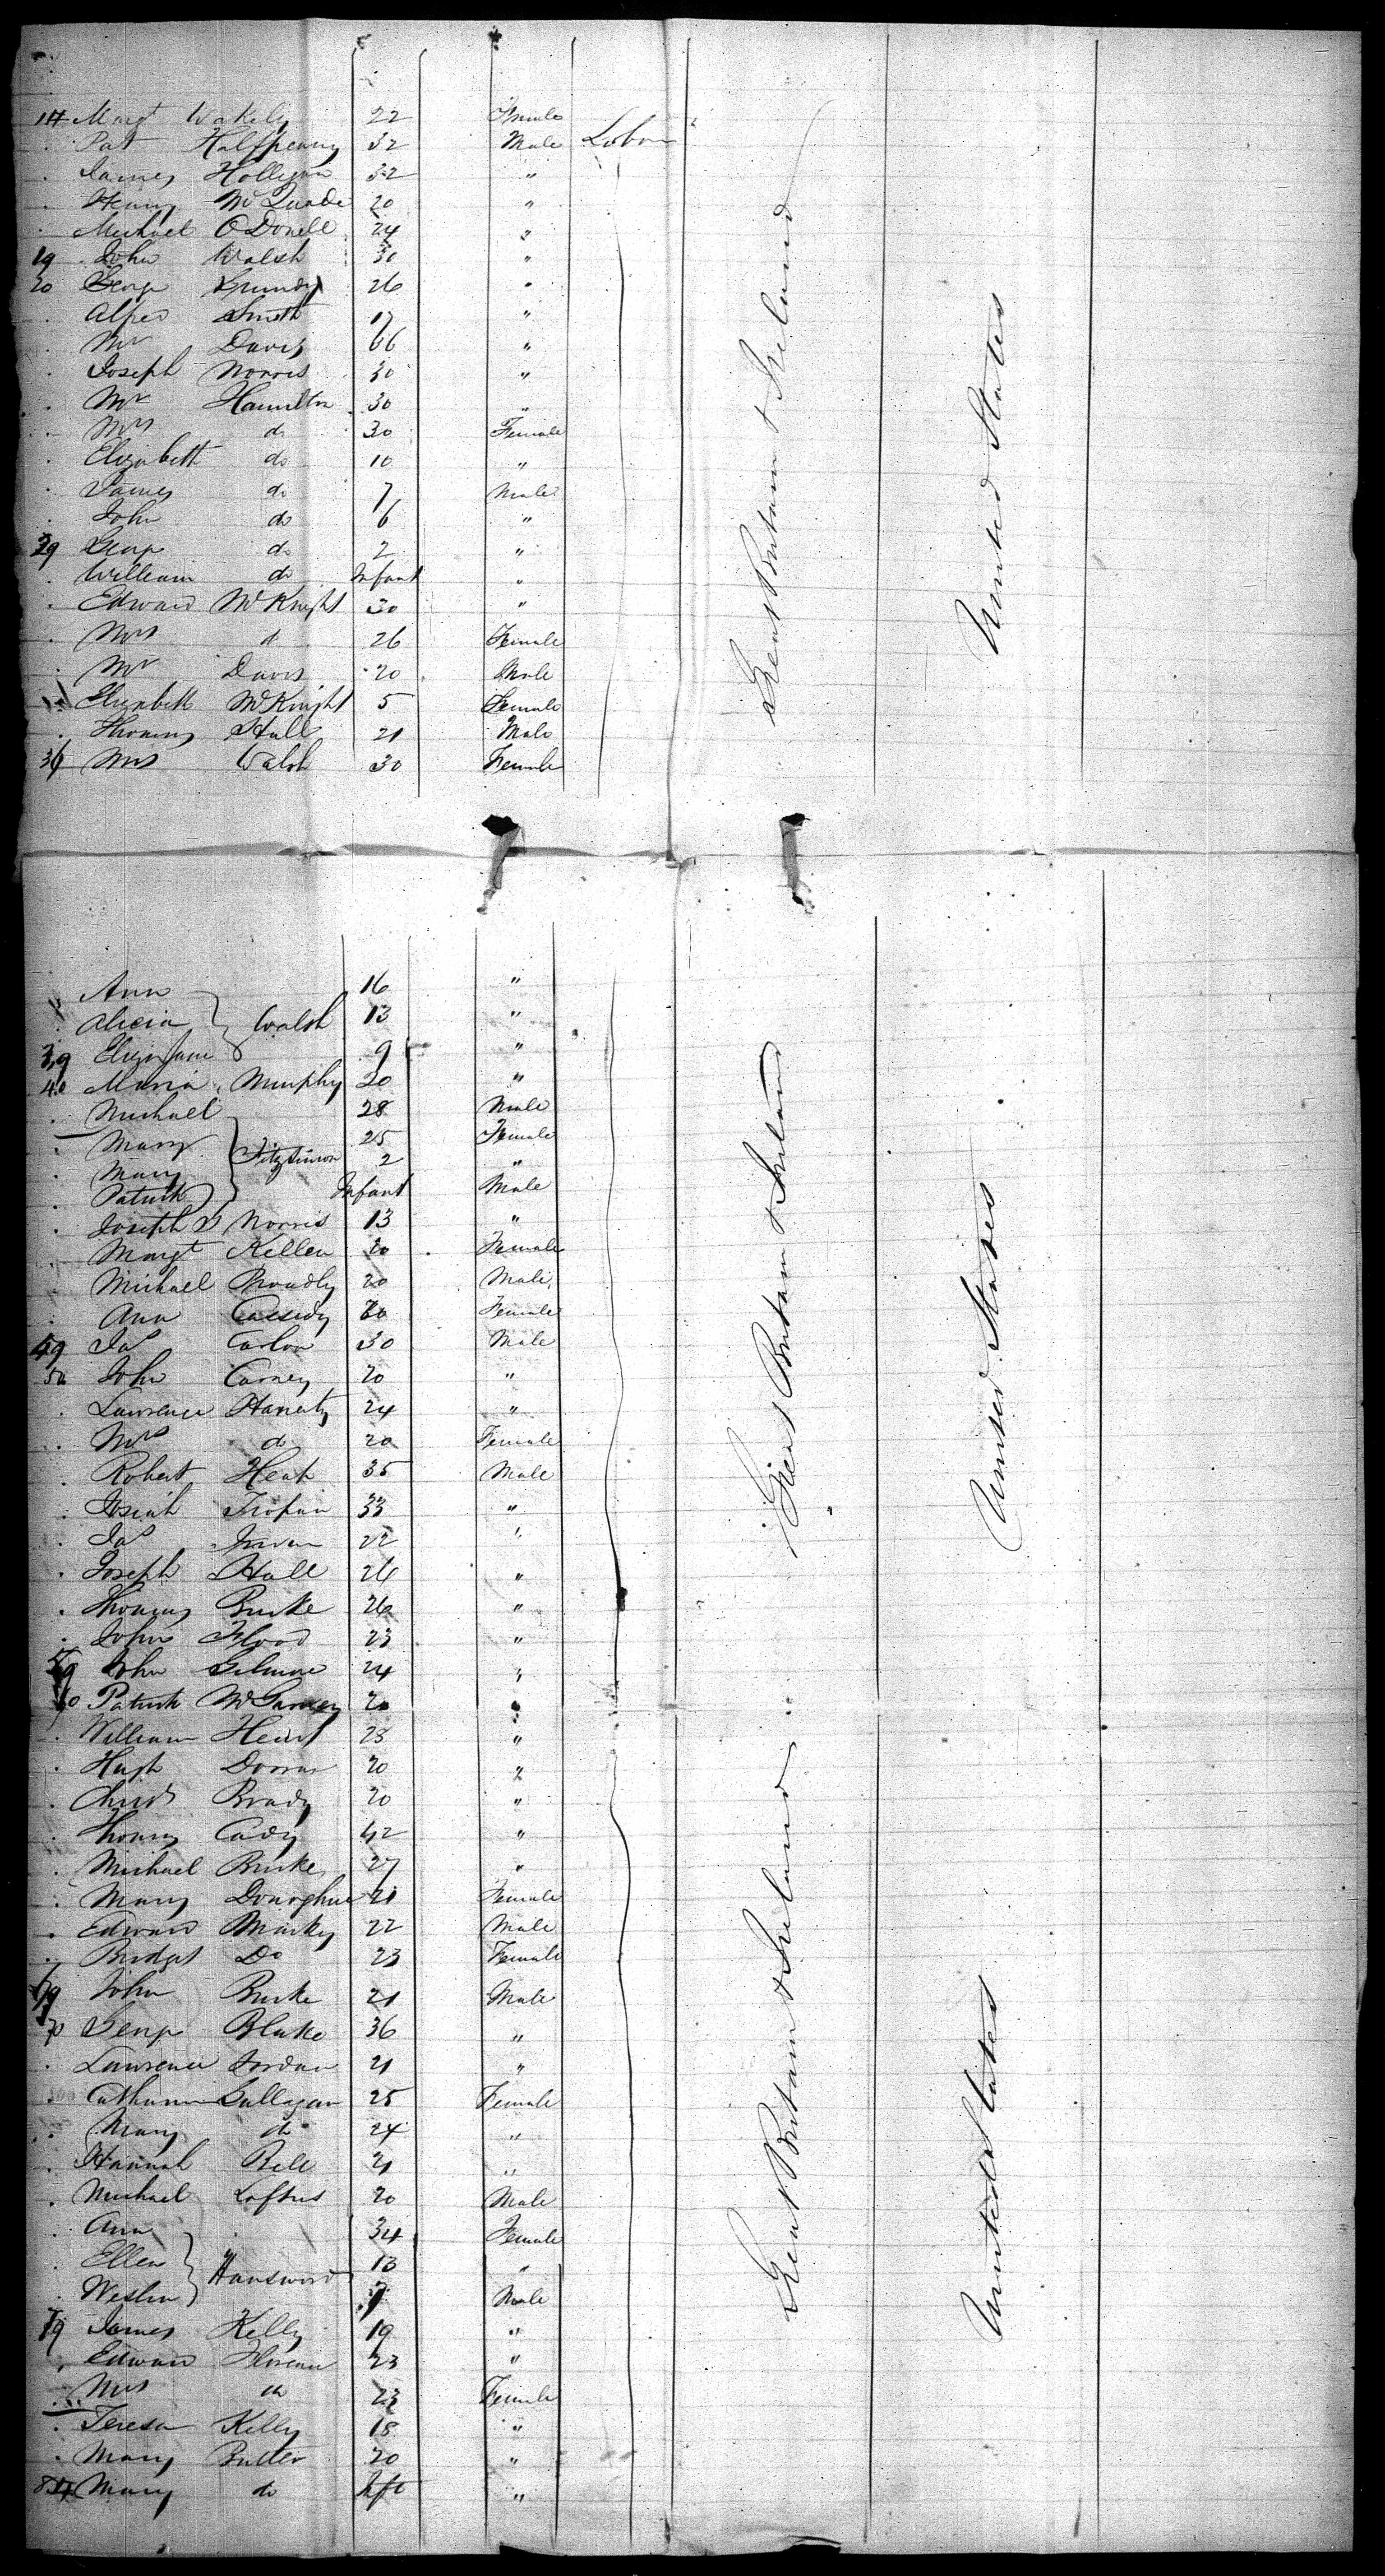 14 Margt Wakely 22 Female
Pat Halfpenny 32 Male Labor
James Holligan 32 "
Henry McQuade 20 "
Michael ODonell 24 "
19 John Walsh 30 "
20 George Grundy 26 "
Alfred Smith 17 "
Mr Davis 66 "
Joseph Norris 30 "
Mr Hamilton 30 "
Mrs do 30 Female
Elizabeth do 10 "
James do 7 Male
John do 6 "
29 George do 2 "
William do Infant "
Edward McKnight 30 "
Mrs do 26 Female
Mr Davis 20 Male
Elizabeth McKnight 5 Female
Thomas Hull 21 Male
36 Mrs Walsh 30 Female
Great Britain & Ireland
United States
Ann 16 "
Alicia Walsh 13 "
39 Eliza Jane 9 "
40 Maria Murphy 20 "
Michael 28 Male
Mary 25 Female
Mary Fitzsimon 2 "
Patrick Infant Male
Joseph Norris 13 "
Margt Kellen 20 Female
Michael Broudly 20 Male
Ann Cassidy 60 Female
49 Jas Carlon 30 Male
50 John Carney 20 "
Lawrence Hanaty 24 "
Mrs do 20 Female
Robert Heap 35 Male
Josiah 33 "
Jas 22 "
Joseph Hall 26 "
Thomas Burke 26 "
John Flood 23 "
59 John Gilmore 24 "
60 Patrick McGarvey 20 "
William 23 "
Hugh Dorran 20 "
Christ Brady 20 "
Thomas Cady 42 "
Michael Burke 27 "
Mary Donoghue 21 Female
Edward Markey 22 Male
Bridget Do 23 Female
69 John Burke 21 Male
70 George Blake 36 "
Lawrence Jordan 21 "
Catharine Gallagan 25 Female
Mary do 24 "
Hannah Bell 21 "
Michael Loftus 20 Male
Ann 34 Female
Ellen Hansword 13 "
Weslin 7 Male
79 James Kelly 19 "
Edward 23 "
Mrs do 23 Female
Teresa Kelly 18 "
Mary Butler 20 "
84 Mary do Inft "
Great Britain & Ireland
United States
Great Britain & Ireland
United States